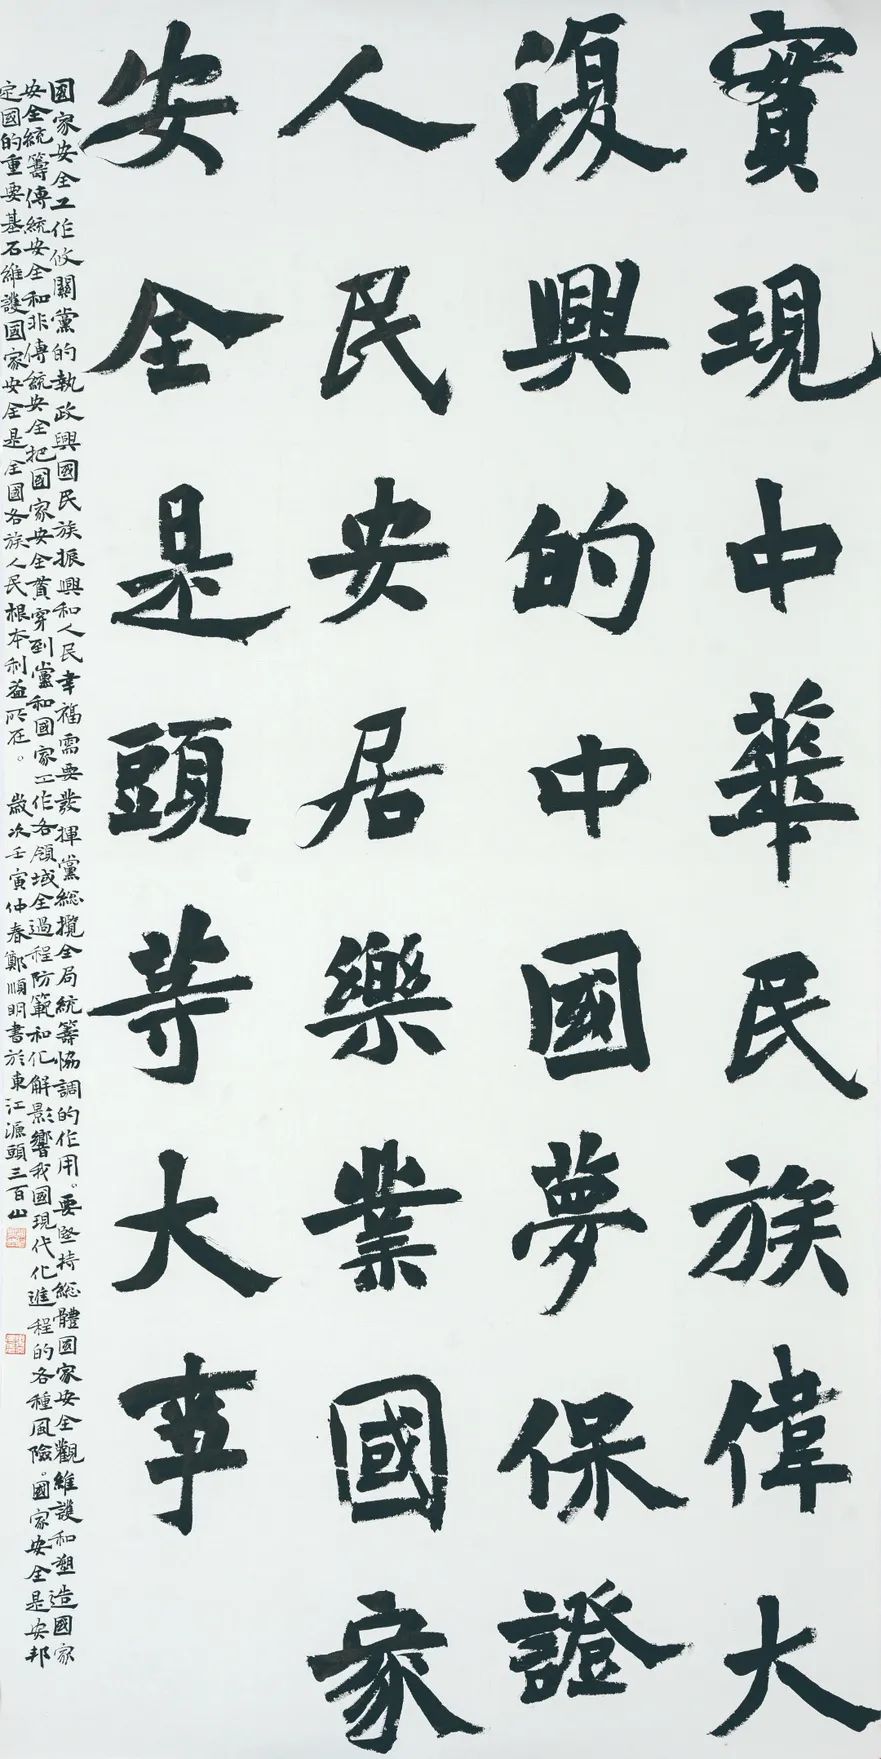 實現中華民族偉大
復興的中國夢保證
人民安居樂業國家
安全是頭等大事
國家安全工作攸關黨的執政興國民族振興和人民幸福需要發揮黨總攬全局統籌協調的作用。要堅持總體國家安全觀維護和塑造國家
安全統籌傳統安全和非傳統安全把國家安全貫穿到黨和國家工作各領域全過程防範和化解影響我國現代化進程的各種風險。國家安全是安邦
定國的重要基石維護國家安全是全國各族人民根本利益所在。歲次壬寅仲春鄭順明書於東江源頭三百山